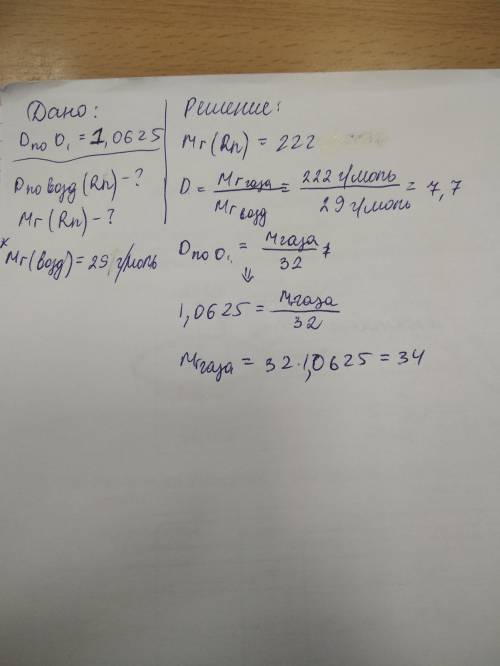 Дано:
D по O₂ = 1,0625
D по возд (Rn) - ?
Mr (Rn) - ?
* Mr (возд) = 29 г/моль
Решение:
Mr (Rn) = 222
D = Mr газа / Mr возд = 222 г/моль / 29 г/моль = 7,7
D по O₂ = Mr газа / 32
⇓
1,0625 = Mr газа / 32
Mr газа = 32 · 1,0625 = 34